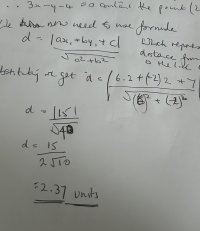 ∴ 3x-y-4 =0 contain the point (2
now need to use formula
d = |ax₁ + by₁ + c| / √(a²+b²)
which repres
distance from
substituting we get d = |6.2 + (-2)2 + 7| / √((6)² + (-2)²)
d = |15| / √40
d = 15 / 2√10
= 2.37 units